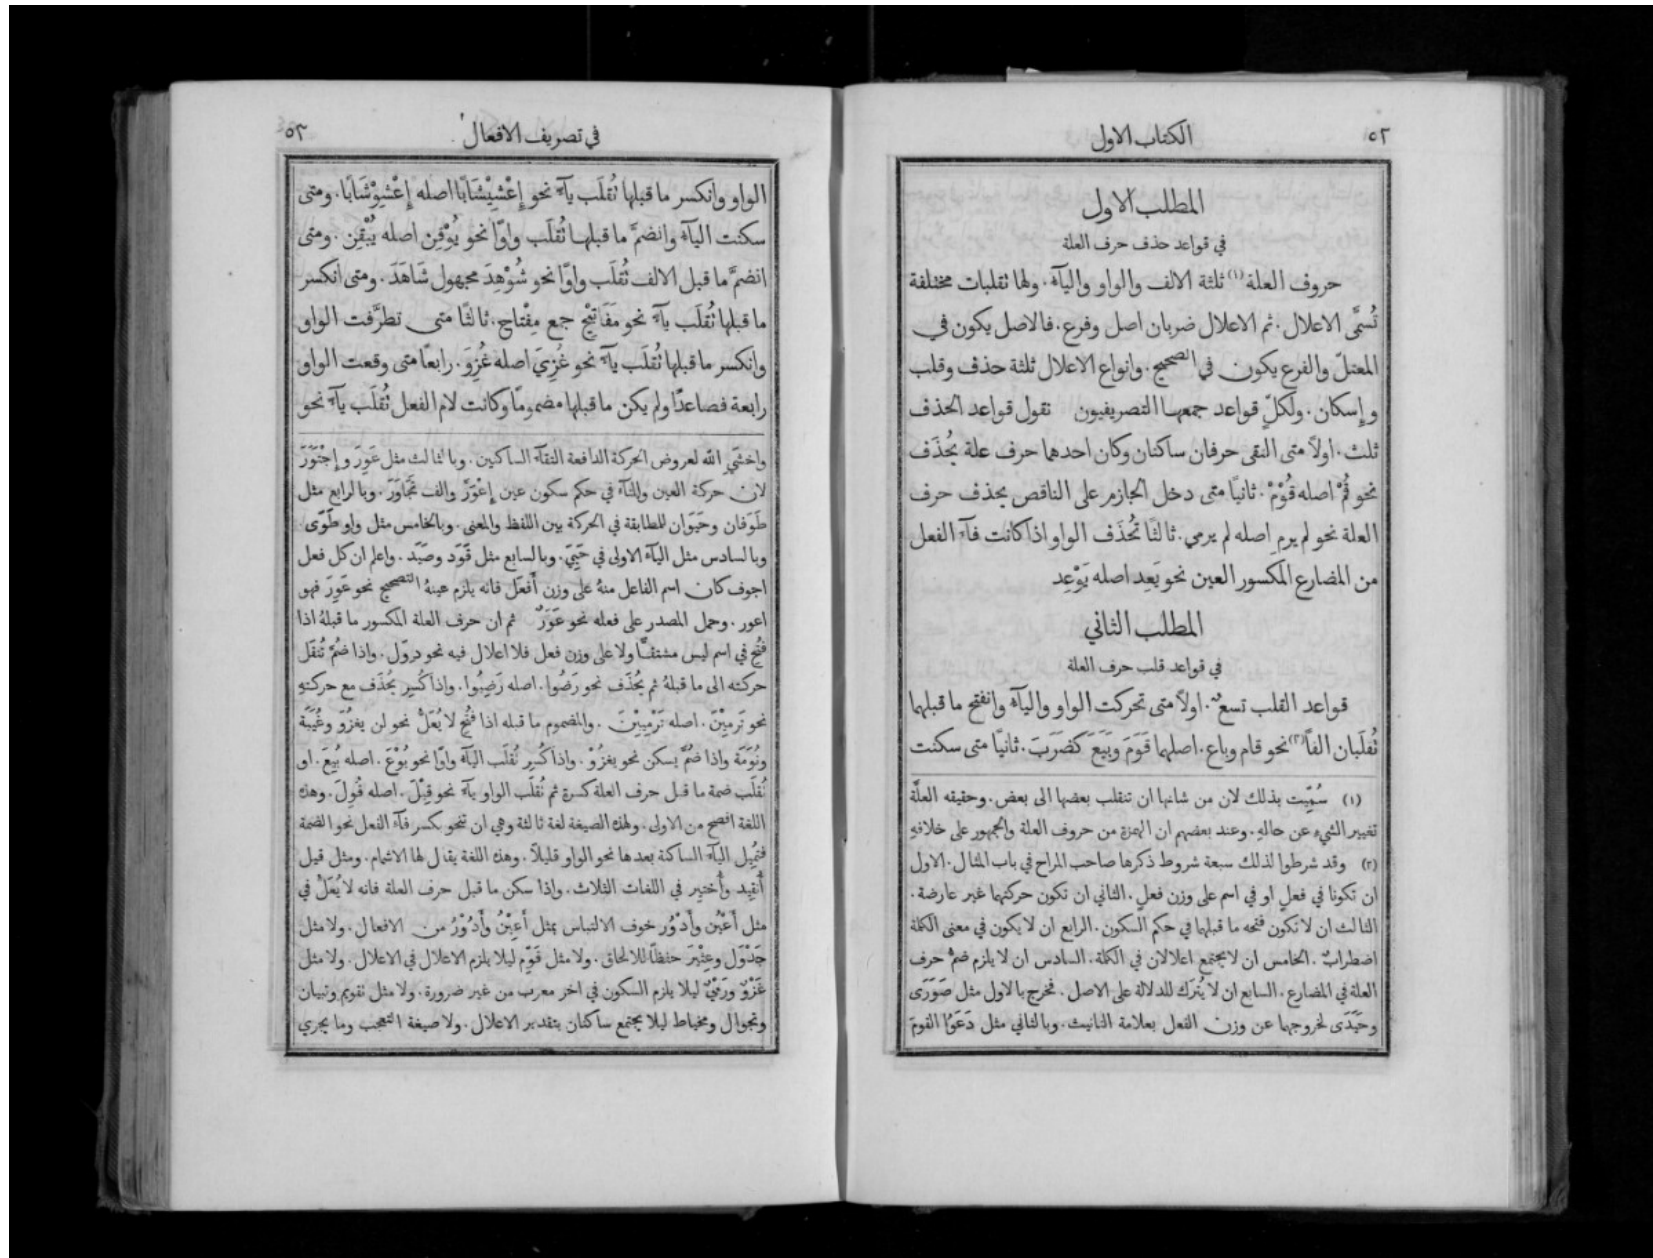 ٥٢
الكتاب الاول
المطلب الاول
في قواعد حذف حرف العلة
حروف العلة (١) ثلثة الالف والواو واليآء. ولها تقلبات مختلفة
تُسمَّى الاعلال. ثم الاعلال ضربان اصل وفرع. فالاصل يكون في
المعتلّ والفرع يكون في الصحيح. وانواع الاعلال ثلثة حذف وقلب
وإسكان. ولكلٍّ قواعد جمعها التصريفيون نقول قواعد الحذف
ثلث. اولاً متى التقى حرفان ساكنان وكان احدهما حرف علة يُحذَف
نحو قُمْ اصله قُوْمْ. ثانيًا متى دخل الجازم على الناقص يحذف حرف
العلة نحو لم يرمِ اصله لم يرمي. ثالثًا تُحذَف الواو اذا كانت فآء الفعل
من المضارع المكسور العين نحو يَعِد اصله يَوْعِد
المطلب الثاني
في قواعد قلب حرف العلة
قواعد القلب تسعٌ. اولاً متى تحركت الواو واليآء وانفتح ما قبلهما
تُقلَبان الفاً (٢) نحو قام وباع. اصلهما قَوَمَ وبَيَعَ كضَرَبَ. ثانيًا متى سكنت
(١) سُمِّيت بذلك لان من شانها ان تنقلب بعضها الى بعض. وحقيقه العلَّة
تغيير الشيء عن حالهِ. وعند بعضهم ان الهمزة من حروف العلة والجمهور على خلافهِ
(٢) وقد شرطوا لذلك سبعة شروط ذكرها صاحب المراح في باب المثال. الاول
ان تكونا في فعلٍ او في اسم على وزن فعلٍ. الثاني ان تكون حركتهما غير عارضة.
الثالث ان لا تكون فتحه ما قبلهما في حكم السكون. الرابع ان لا يكون في معنى الكلمة
اضطرابٌ. الخامس ان لا يجتمع اعلالان في الكلمة. السادس ان لا يلزم ضمُّ حرف
العلة في المضارع. السابع ان لا يُترَك للدلالة على الاصل. فخرج بالاول مثل صَوَرَى
وحَيَدَى لخروجهما عن وزن الفعل بعلامة التانيث. وبالثاني مثل دَعَوُا القومَ
في تصريف الافعال
٥٣
الواو وانكسر ما قبلها تُقلَب يآء نحو إِعْشِيْشَابًا اصله إِعْشِوْشَابًا. ومتى
سكنت اليآء وانضمَّ ما قبلها تُقلَب واوًا نحو يُوْقِن اصله يُيْقِن. ومتى
انضمَّ ما قبل الالف تُقلَب واوًا نحو شُوْهِدَ مجهول شَاهَدَ. ومتى انكسر
ما قبلها تُقلَب يآء نحو مَفَاتِيْح جمع مِفْتاح. ثالثًا متى تطرَّفت الواو
وانكسر ما قبلها تُقلَب يآء نحو غُزِيَ اصله غُزِوَ. رابعًا متى وقعت الواو
رابعة فصاعدًا ولم يكن ما قبلها مضمومًا وكانت لام الفعل تُقلَب يآء نحو
واخشَيِ الله لعروض الحركة الدافعة التقآء الساكنين. وبالثالث مثل عَوِرَ وإِجْتَوَرَ
لان حركة العين والتآء في حكم سكون عين إِعْوَرَّ والف تَجَاوَرَ. وبالرابع مثل
طَوَفان وحَيَوَان للمطابقة في الحركة بين اللفظ والمعنى. وبالخامس مثل واو طَوَى.
وبالسادس مثل اليآء الاولى في حَيِيَ. وبالسابع مثل قَوَد وصَيَد. واعلم ان كل فعل
اجوف كان اسم الفاعل منهُ على وزن أَفعَل فانه يلزم عينهُ التصحيح نحو عَوِرَ فهو
اعور. وحمل المصدر على فعله نحو عَوَرٌ ثم ان حرف العلة المكسور ما قبلهُ اذا
فُتِح في اسم ليس مشتقًّا ولا على وزن فعل فلا اعلال فيه نحو دِوَل. واذا ضُمَّ تُنقَل
حركته الى ما قبلهُ ثم يُحذَف نحو رَضُوا. اصله رَضِيُوا. واذا كُسِر يُحذَف مع حركتهِ
نحو تَرمِيْنَ. اصله تَرْمِيِيْنَ. والمضموم ما قبله اذا فُتِح لا يُعَلُّ نحو لن يغزُوَ وغُيَبَة
ونُوَمَة واذا ضُمَّ يسكن نحو يغزُوْ. واذا كُسِر تُقلَب اليآء واوًا نحو بُوْعَ. اصله بُيِعَ. او
تُقلَب ضمة ما قبل حرف العلة كسرة ثم تُقلَب الواو يآء نحو قِيْلَ. اصله قُوِلَ. وهذه
اللغة افصح من الاولى. ولهذه الصيغة لغة ثالثة وهي ان تنحو بكسر فآء الفعل نحو الضمة
فتميل اليآء الساكنة بعدها نحو الواو قليلاً. وهذه اللغة يقال لها الاشمام. ومثل قيل
أُنقِيد وأُختِير في اللغات الثلاث. واذا سكن ما قبل حرف العلة فانه لا يُعَلُّ في
مثل أَعْيُن وأَدْوُر خوف الالتباس بمثل أَعِيْنُ وأَدُوْرُ من الافعال. ولا مثل
جَدْوَل وعِثْيَر حفظًا للالحاق. ولا مثل قَوَّم ليلا يلزم الاعلال في الاعلال. ولا مثل
غَزْوٌ ورَمْيٌ ليلا يلزم السكون في اخر معرب من غير ضرورة. ولا مثل تقويم وتبيان
وتجوال ومخياط ليلا يجتمع ساكنان بتقدير الاعلال. ولا صيغة التعجب وما يجري